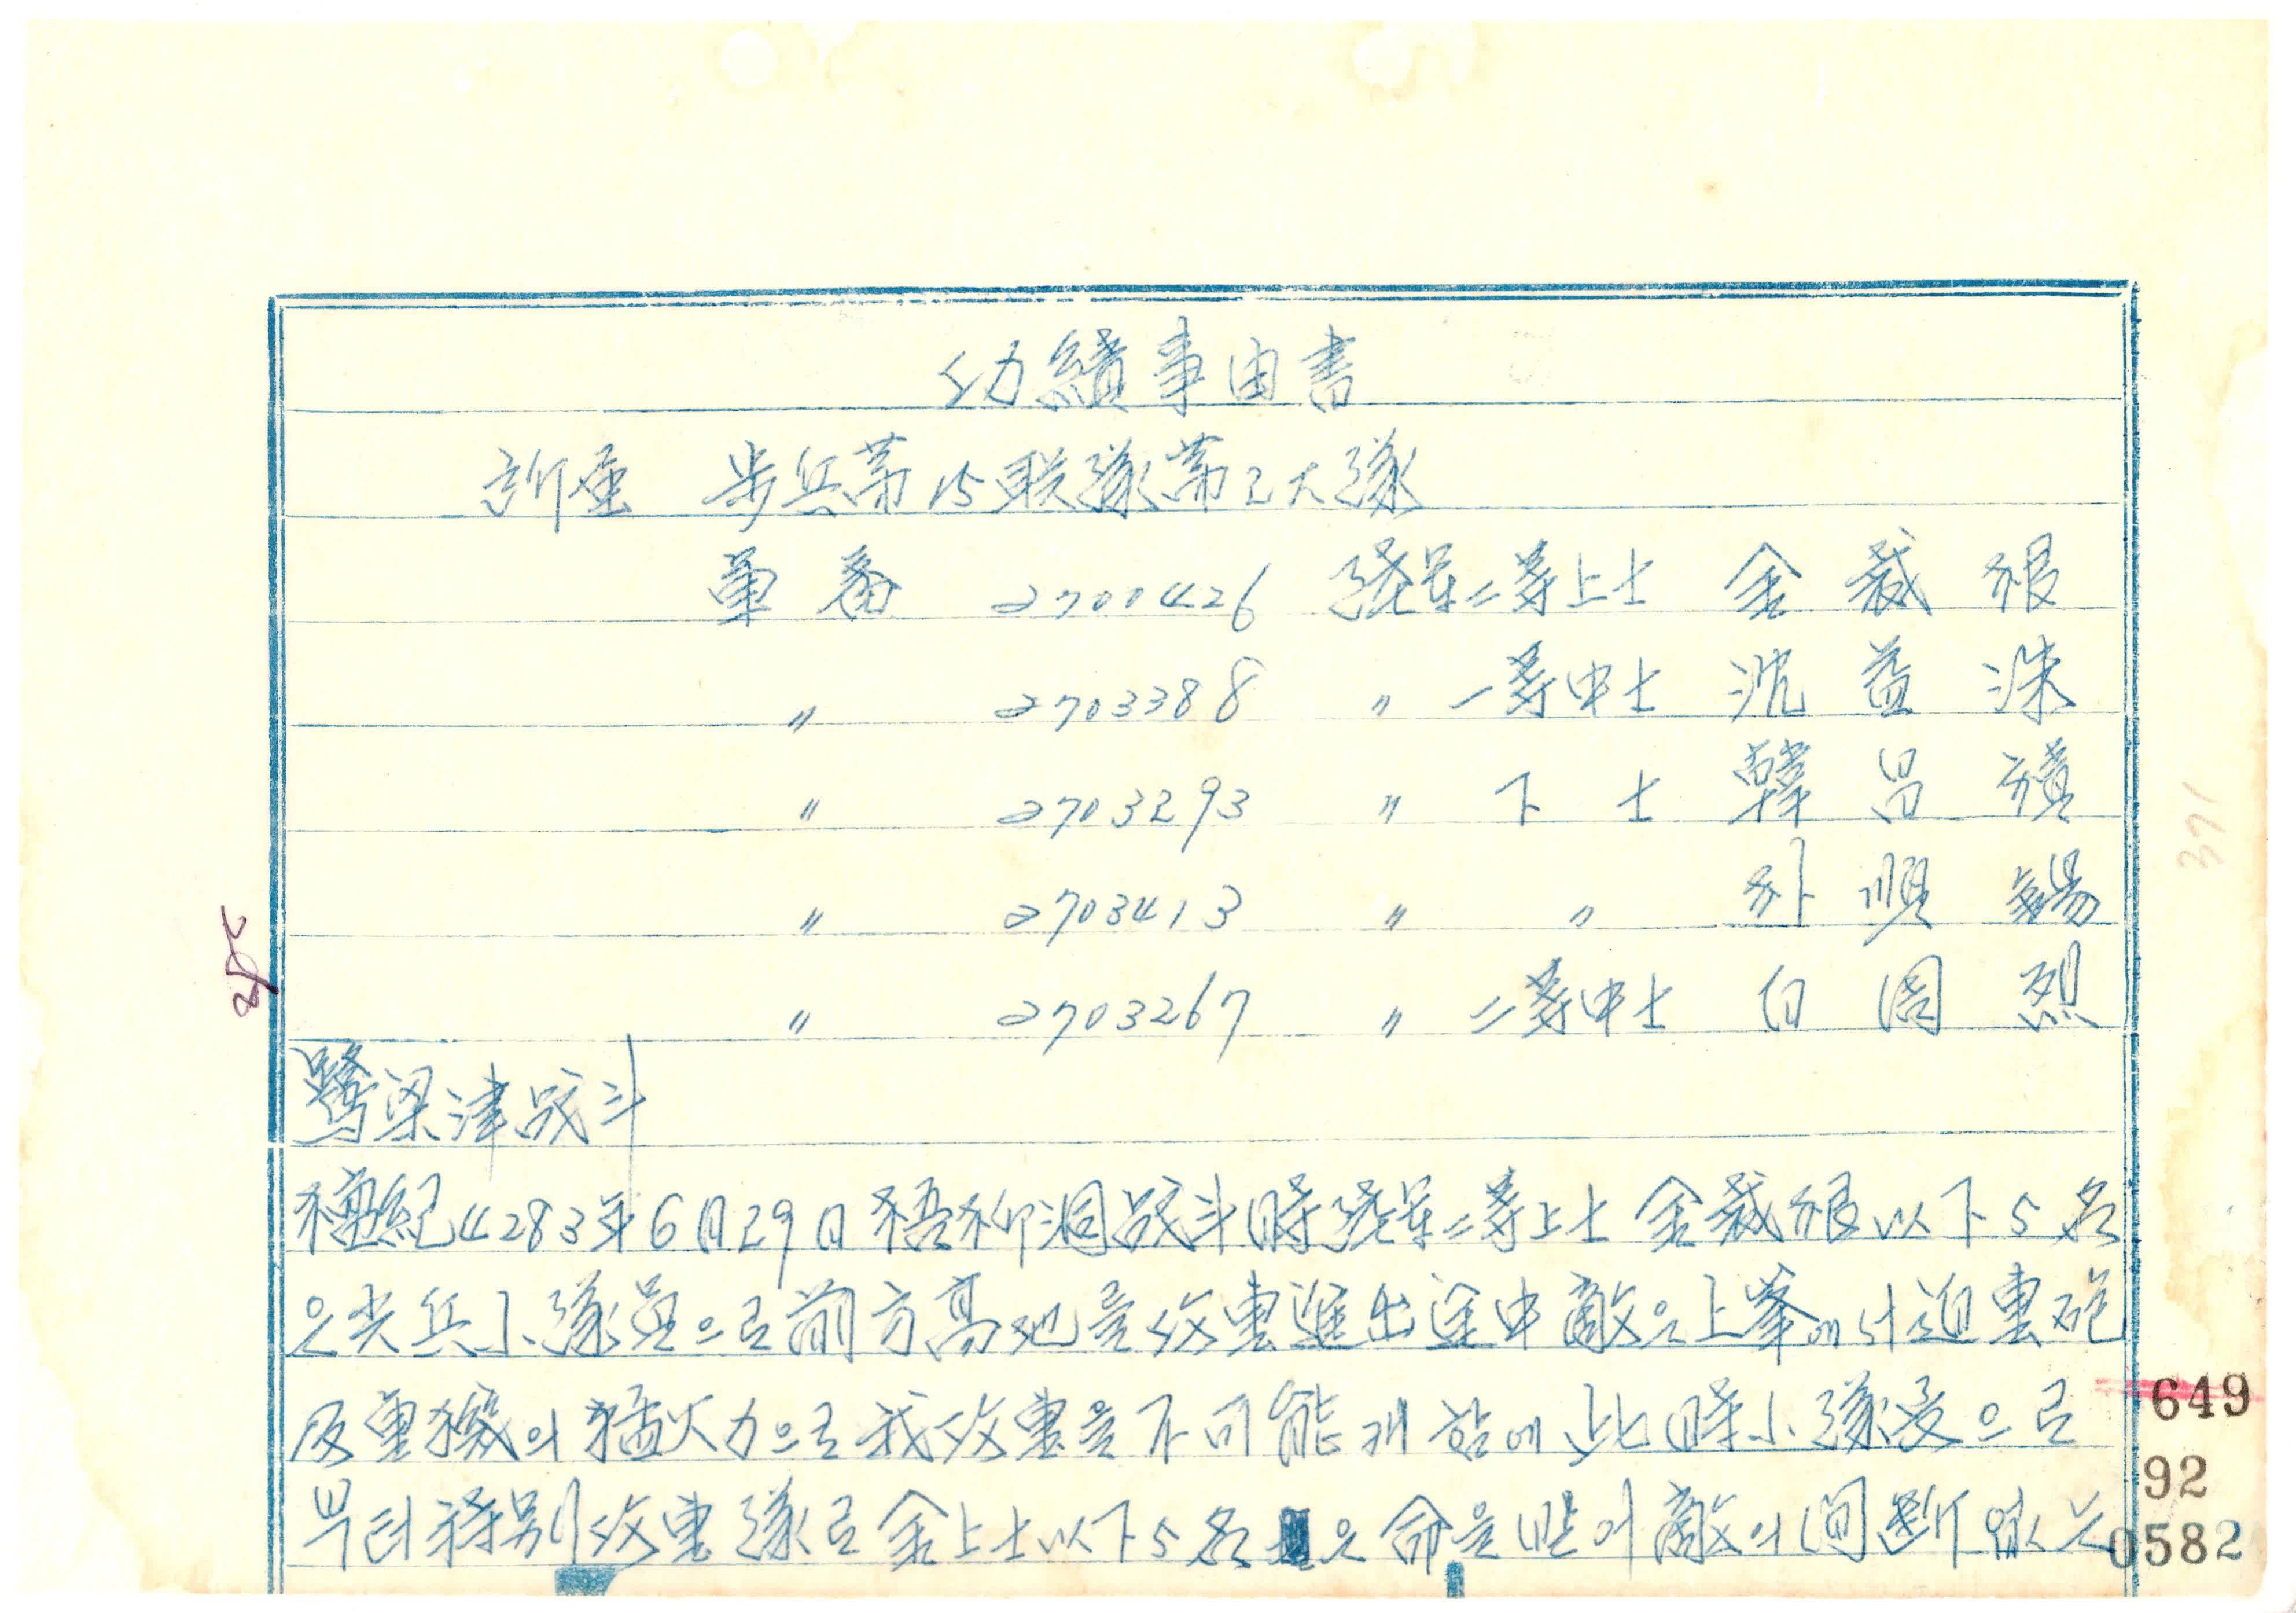 功績事由書
所屬 步兵第15联隊第2大隊
軍番 2700426 陸軍二等上士 金裁根
〃 2703388 〃 一等中士 沈益洙
〃 2703293 〃 下士 韓昌積
〃 2703413 〃 〃 朴順錫
〃 2703267 〃 二等中士 白周烈
鷺梁津战斗
檀紀4283年6月29日梧柳洞战斗時陸軍二等上士金裁根以下5名
은尖兵小隊員으로前方高地를攻擊進出途中敵은上峯에서迫擊砲
及重機의猛火力으로我攻擊을不可能케함에此時小隊長으로
부터特別攻擊隊로金上士以下5名은命을받어敵의间断없는
371
649
92
0582